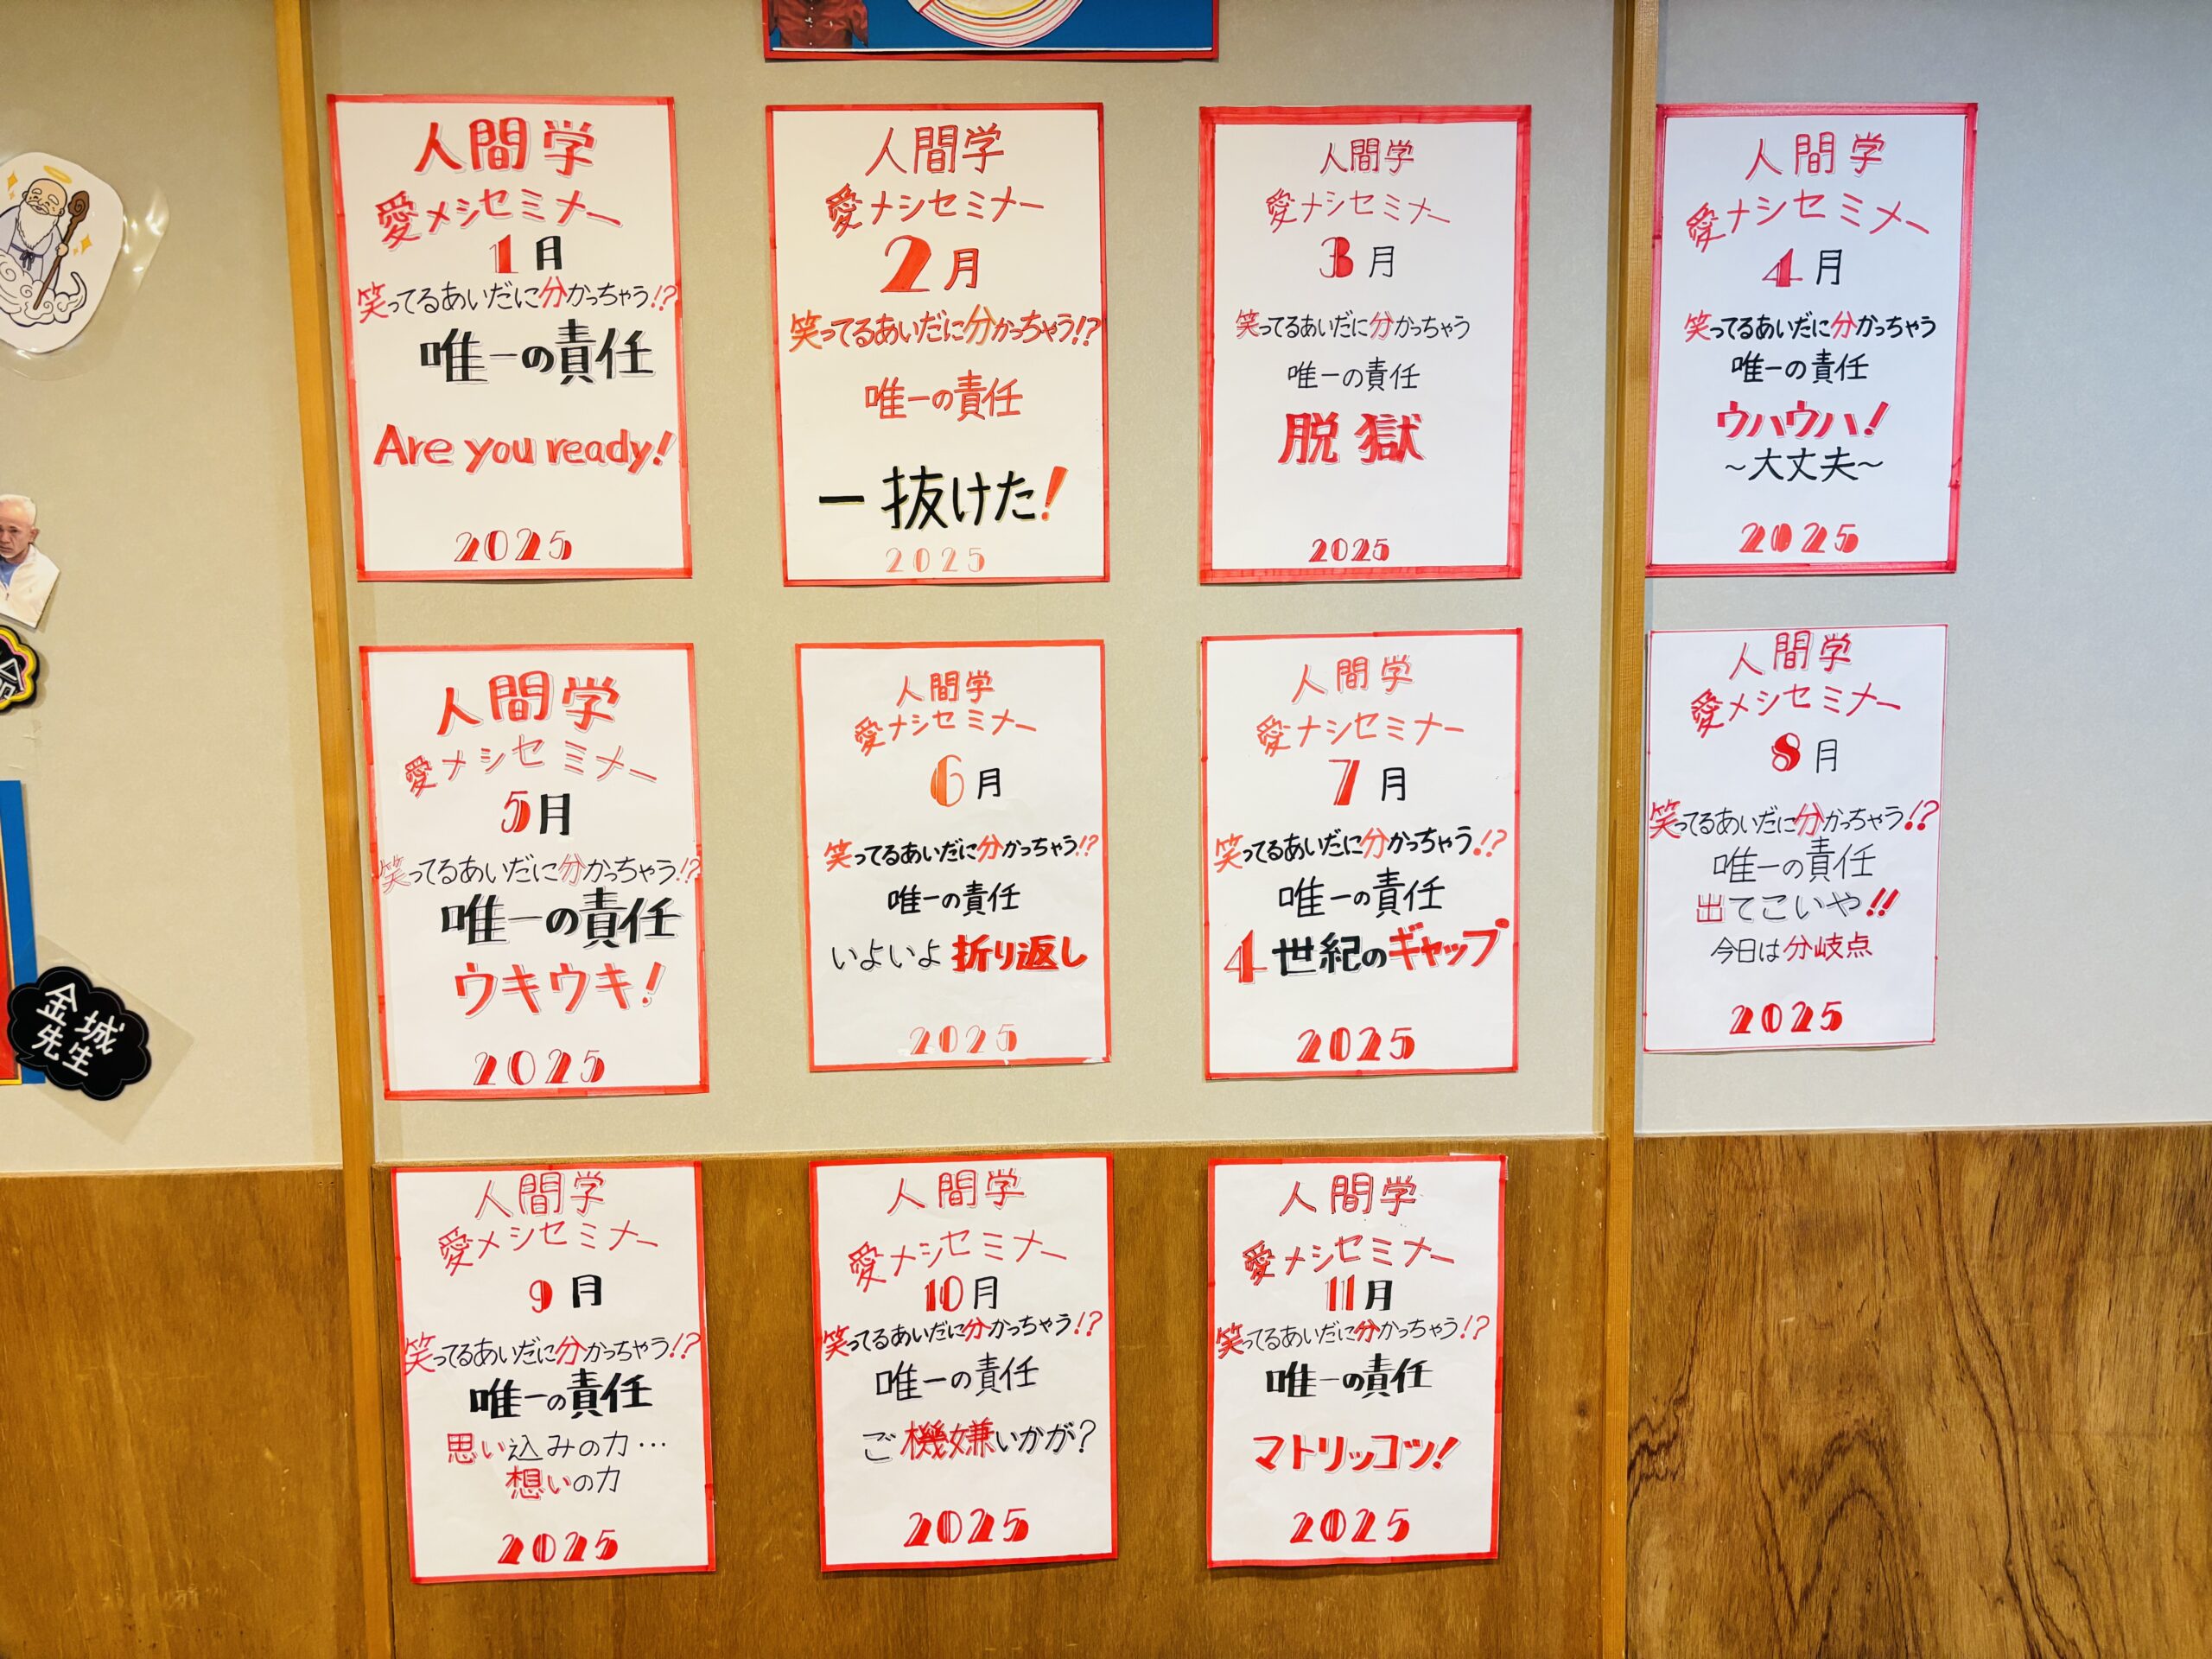 人間学
愛メシセミナー
1月
笑ってるあいだに分かっちゃう!?
唯一の責任
Are you ready!
2025
人間学
愛ナシセミナー
2月
笑ってるあいだに分かっちゃう!?
唯一の責任
一抜けた!
2025
人間学
愛ナシセミナー
3月
笑ってるあいだに分かっちゃう
唯一の責任
脱獄
2025
人間学
愛ナシセミメー
4月
笑ってるあいだに分かっちゃう
唯一の責任
ウハウハ!
~大丈夫~
2025
人間学
愛メシセミナー
5月
笑ってるあいだに分かっちゃう!?
唯一の責任
ウキウキ!
2025
人間学
愛ナシセミナー
6月
笑ってるあいだに分かっちゃう!?
唯一の責任
いよいよ折り返し
2025
人間学
愛ナシセミナー
7月
笑ってるあいだに分かっちゃう!?
唯一の責任
4世紀のギャップ
2025
人間学
愛メシセミナー
8月
笑ってるあいだに分かっちゃう!?
唯一の責任
出てこいや!!
今日は分岐点
2025
人間学
愛メシセミナー
9月
笑ってるあいだに分かっちゃう!?
唯一の責任
思い込みの力…
想いの力
2025
人間学
愛メシセミナー
10月
笑ってるあいだに分かっちゃう!?
唯一の責任
ご機嫌いかが?
2025
人間学
愛メシセミナー
11月
笑ってるあいだに分かっちゃう!?
唯一の責任
マトリッコツ!
2025
金城
先生